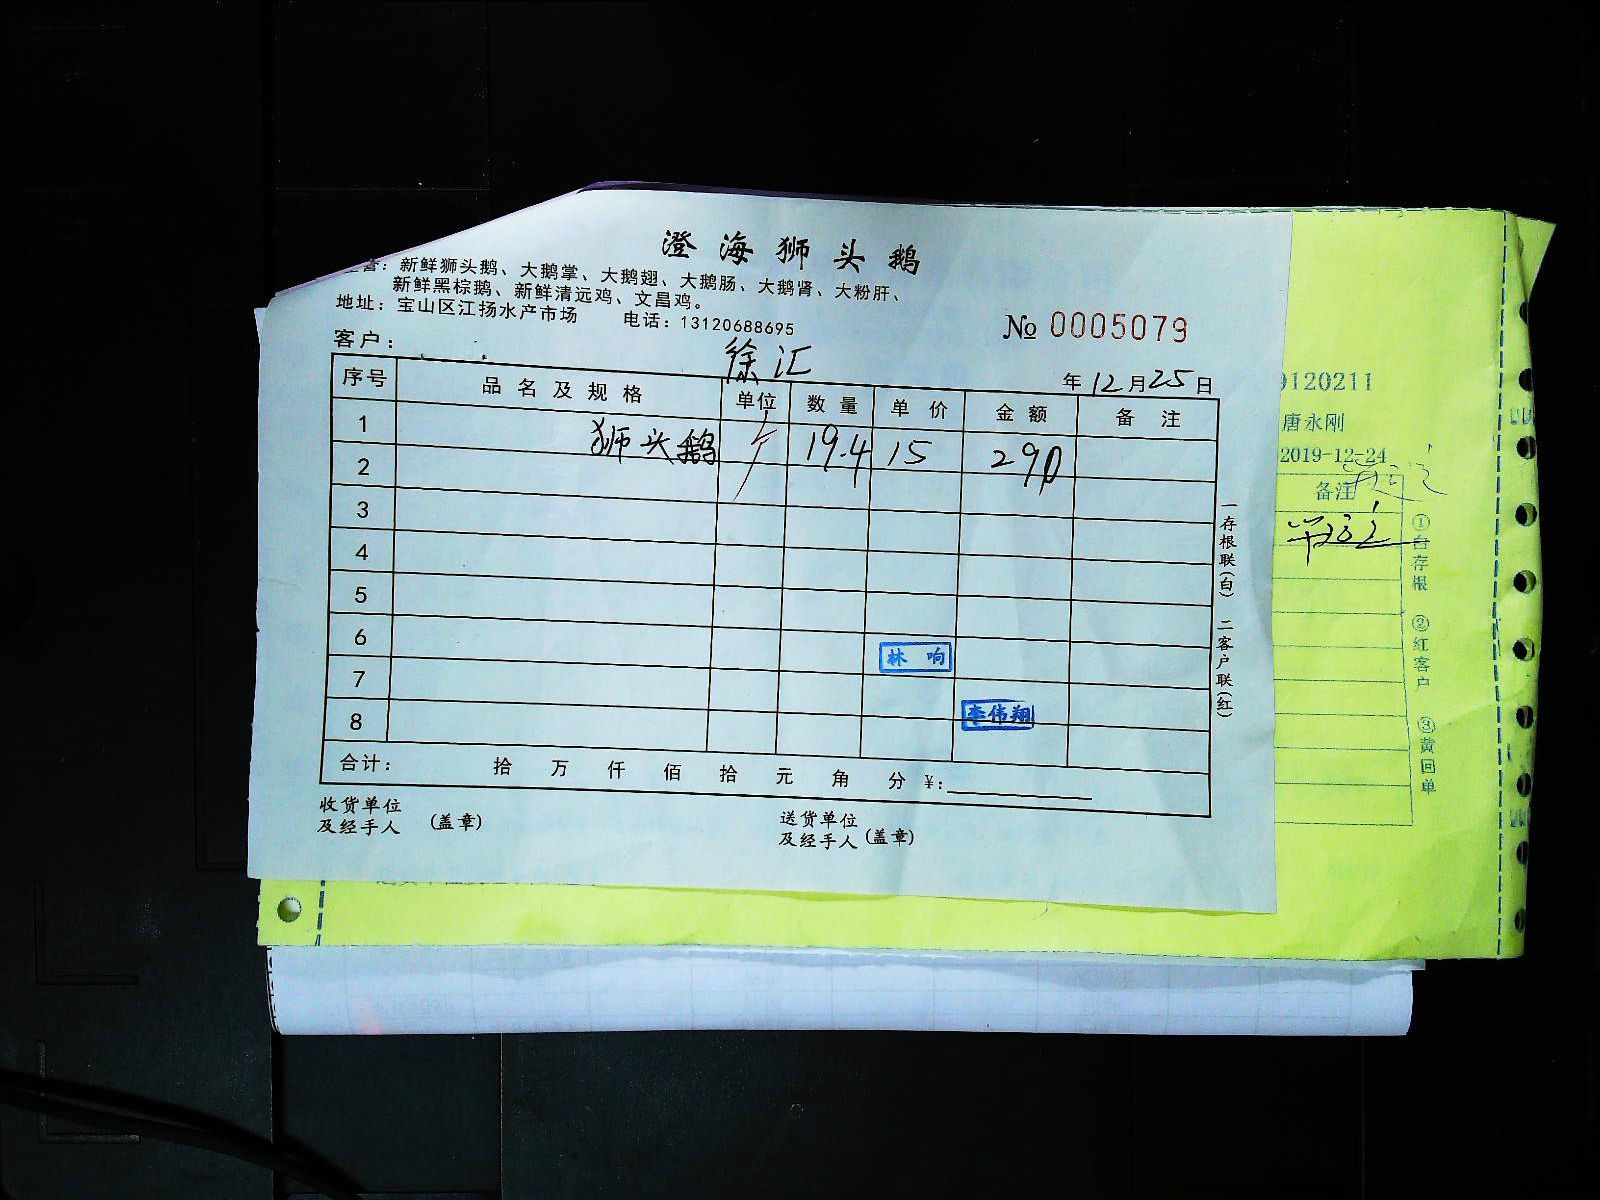 澄海狮头鹅
主营：新鲜狮头鹅、大鹅掌、大鹅翅、大鹅肠、大鹅肾、大粉肝、
新鲜黑棕鹅、新鲜清远鸡、文昌鸡。
地址：宝山区江扬水产市场 电话：13120688695
№ 0005079
客户： 徐汇
年 12 月 25 日
序号 品名及规格 单位 数量 单价 金额 备注
1 狮头鹅 斤 19.4 15 290
2
3
4
5
6 林响
7 李伟翔
8
合计： 拾 万 仟 佰 拾 元 角 分 ¥：
收货单位
及经手人 （盖章）
送货单位
及经手人（盖章）
一存根联（白） 二客户联（红）
9120211
唐永刚
2019-12-24
备注
①白存根 ②红客户 ③黄回单